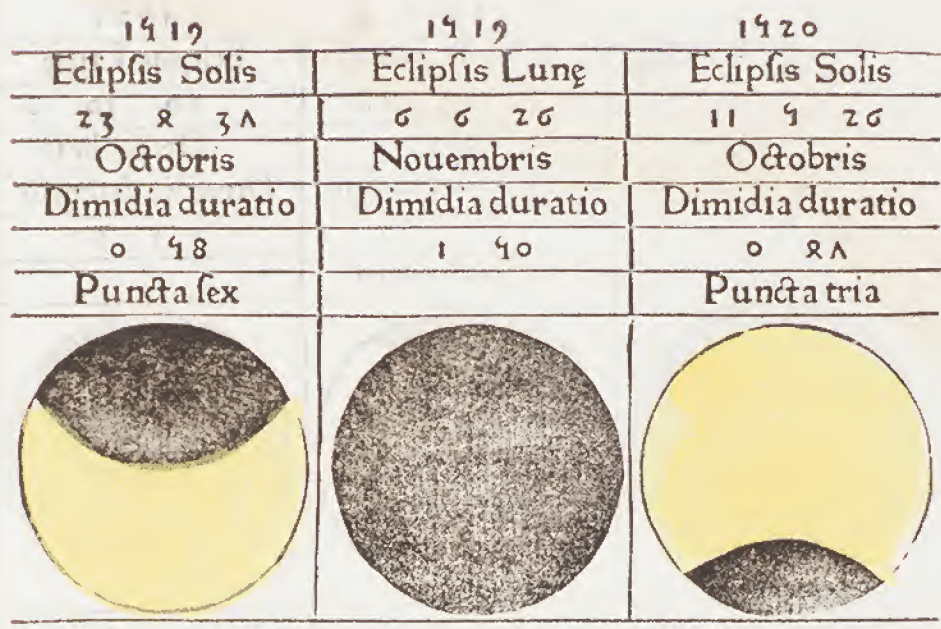 1519 1519 1520
Eclipſis Solis Eclipſis Lunę Eclipſis Solis
23 4 37 6 6 26 11 5 26
Octobris Nouembris Octobris
Dimidia duratio Dimidia duratio Dimidia duratio
0 58 1 50 0 47
Puncta ſex Puncta tria